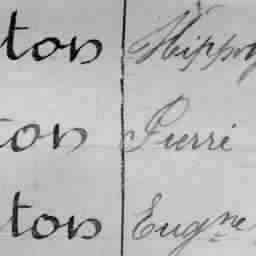 ton Hippo
ton Pierri
ton Eugne